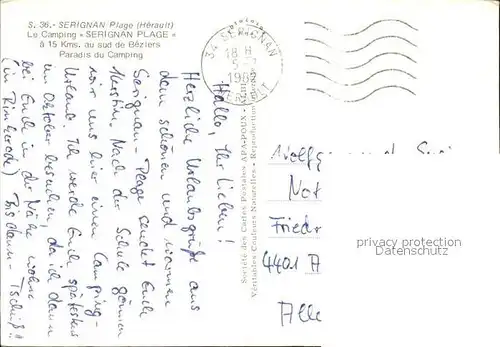 S. 36.- SERIGNAN Plage (Hérault)
Le Camping "SERIGNAN PLAGE"
à 15 Kms. au sud de Béziers
Paradis du Camping
34 SERIGNAN
18 H
5-7
1982
HERAULT
Hallo, Ihr Lieben!
Herzliche Urlaubsgrüße aus
dem schönen und warmen
Serignan-Plage sendet Euch
Kerstin. Nach der Schule gönnen
wir uns hier einen Camping-
Urlaub. Ich werde Euch spätestens
im Oktober besuchen, da ich dann
bei Euch in der Nähe wohne
(in Rinkerode) Bis dann - Tschüß!
Société des Cartes Postales APA-POUX - 
Véritables Couleurs Naturelles - Reproduction
Wolfg
Not
Friedr
4401 A
Alle
privacy protection
Datenschutz